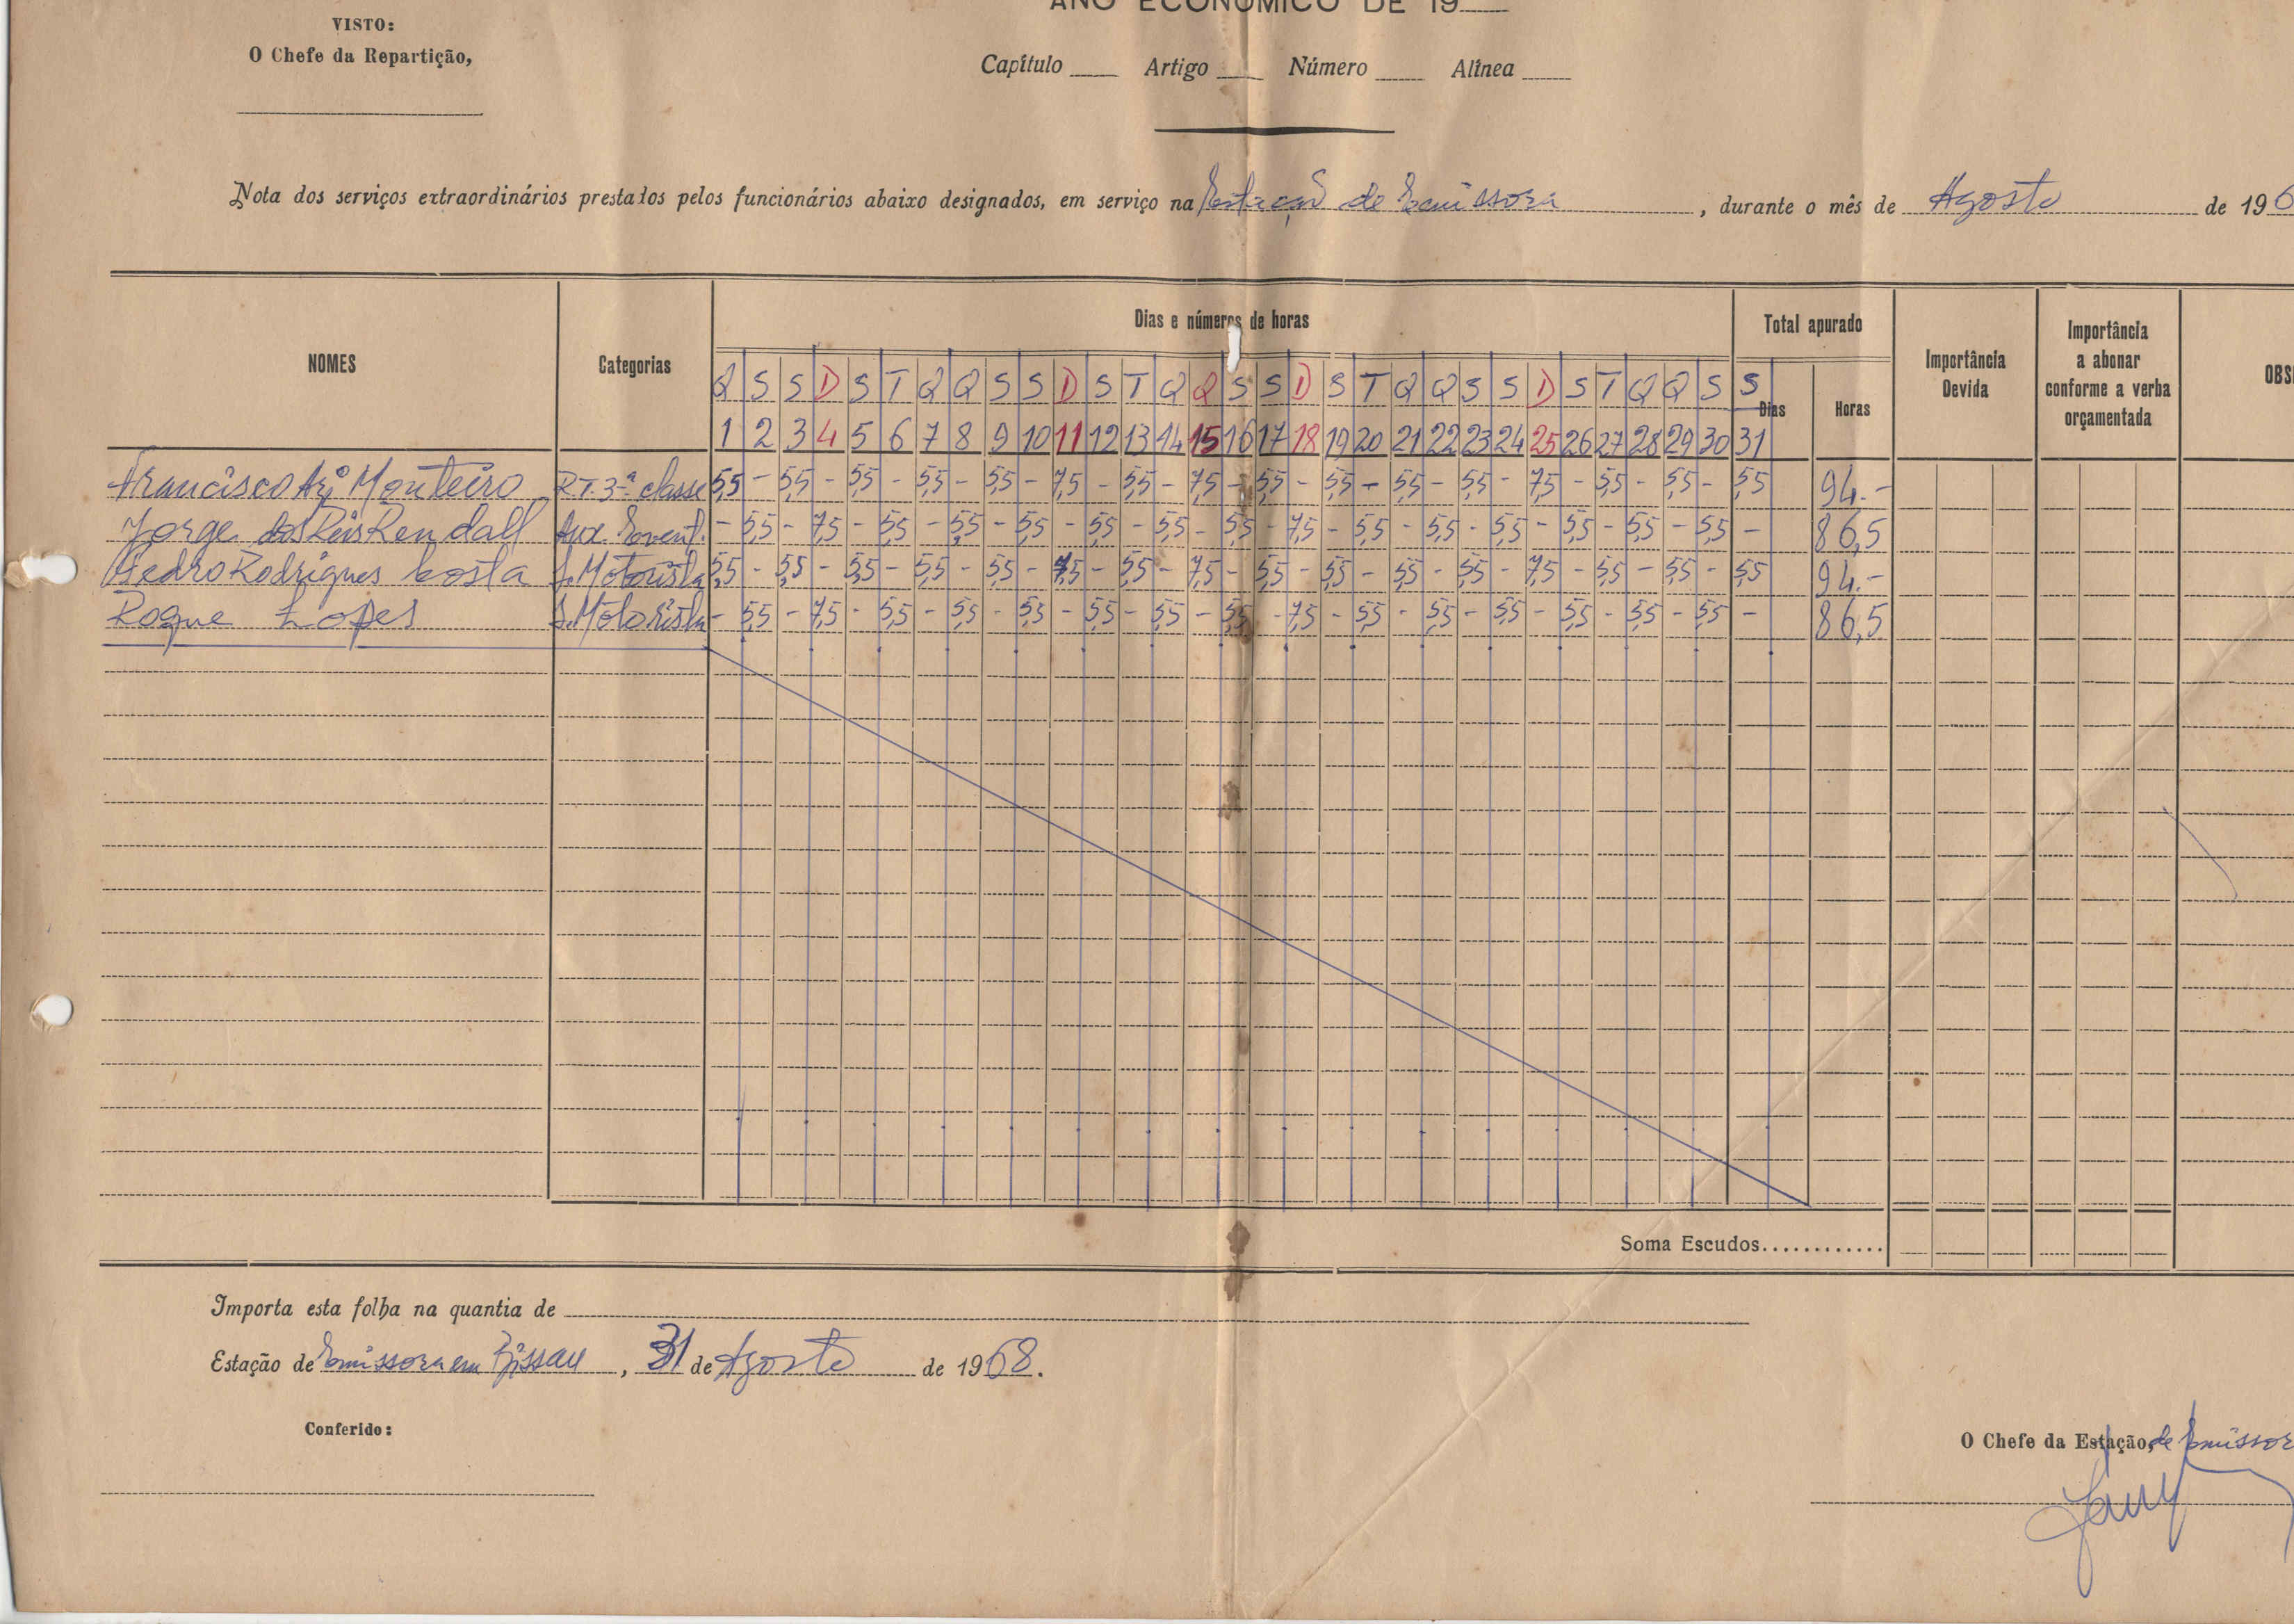 ANO ECONÓMICO DE 19
VISTO:
O Chefe da Repartição,
Capítulo Artigo Número Alínea
Nota dos serviços extraordinários prestados pelos funcionários abaixo designados, em serviço na Estação de Emissora, durante o mês de Agosto de 196
NOMES Categorias Dias e números de horas Total apurado Importância Devida Importância a abonar conforme a verba orçamentada OBS
Q S S D S T Q Q S S D S T Q Q S S D S T Q Q S S D S T Q Q S S Dias Horas
1 2 3 4 5 6 7 8 9 10 11 12 13 14 15 16 17 18 19 20 21 22 23 24 25 26 27 28 29 30 31
Francisco Monteiro R.T. 3ª classe 5,5 - 5,5 - 5,5 - 5,5 - 5,5 - 7,5 - 5,5 - 7,5 - 5,5 - 5,5 - 5,5 - 5,5 - 7,5 - 5,5 - 5,5 - 5,5 94.-
Jorge dos Reis Rendall Aux. Event. - 5,5 - 7,5 - 5,5 - 5,5 - 5,5 - 5,5 - 5,5 - 5,5 - 7,5 - 5,5 - 5,5 - 5,5 - 5,5 - 5,5 - 5,5 - 86,5
Pedro Rodrigues Costa S. Motorista 5,5 - 5,5 - 5,5 - 5,5 - 5,5 - 7,5 - 5,5 - 7,5 - 5,5 - 5,5 - 5,5 - 5,5 - 7,5 - 5,5 - 5,5 - 5,5 94.-
Roque Lopes S. Motorista - 5,5 - 7,5 - 5,5 - 5,5 - 5,5 - 5,5 - 5,5 - 5,5 - 7,5 - 5,5 - 5,5 - 5,5 - 5,5 - 5,5 - 5,5 - 86,5
Soma Escudos............
Importa esta folha na quantia de
Estação de Emissora em Bissau, 31 de Agosto de 1968.
Conferido:
O Chefe da Estação, de Emissor